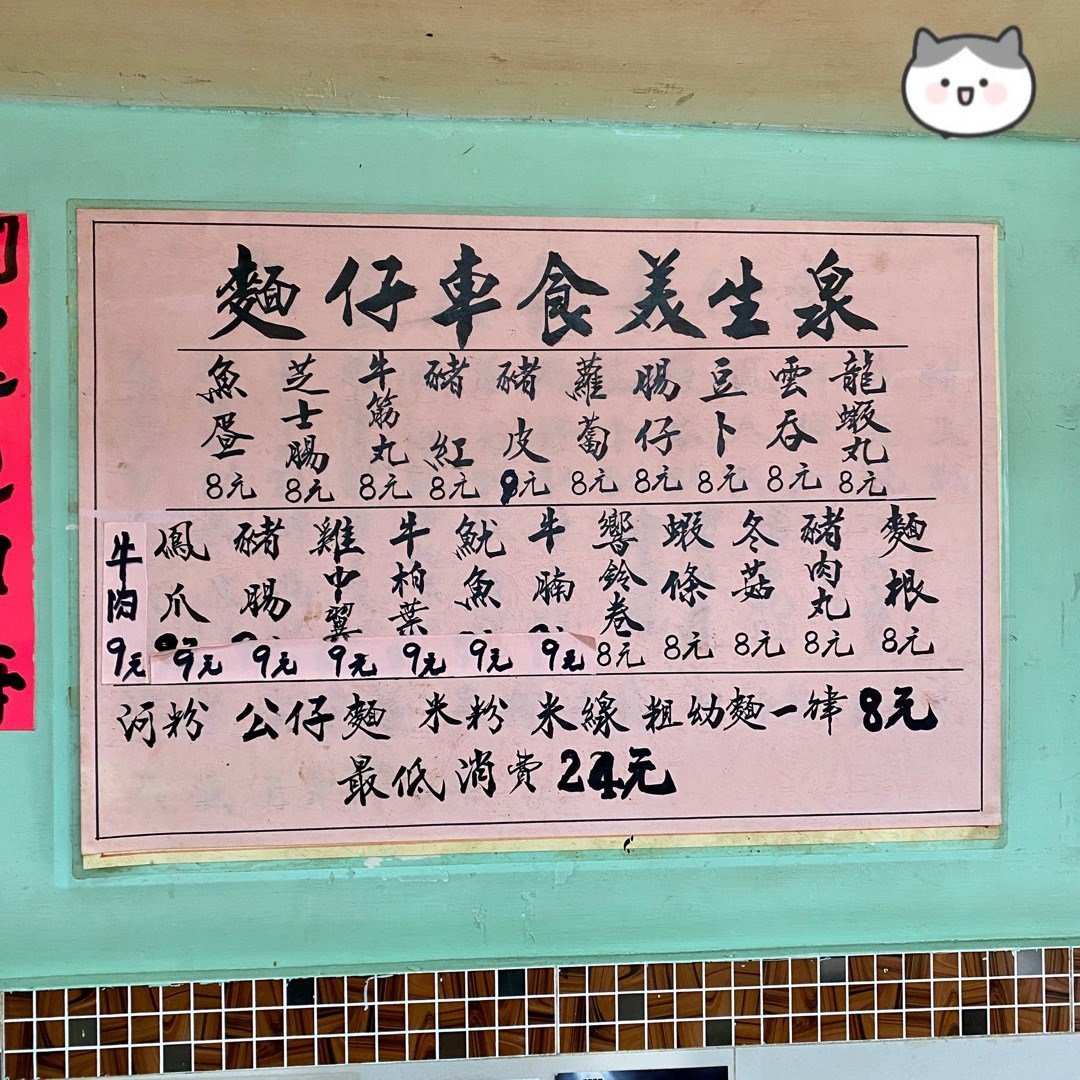 泉生美食車仔麵
龍蝦丸 8元
雲吞 8元
豆卜 8元
腸仔 8元
蘿蔔 8元
豬皮 9元
豬紅 8元
牛筋丸 8元
芝士腸 8元
魚蛋 8元
麵根 8元
豬肉丸 8元
冬菇 8元
蝦條 8元
響鈴卷 8元
牛腩 9元
魷魚 9元
牛柏葉 9元
雞中翼 9元
豬腸 9元
鳳爪 9元
牛肉 9元
河粉 公仔麵 米粉 米線 粗幼麵一律8元
最低消費24元